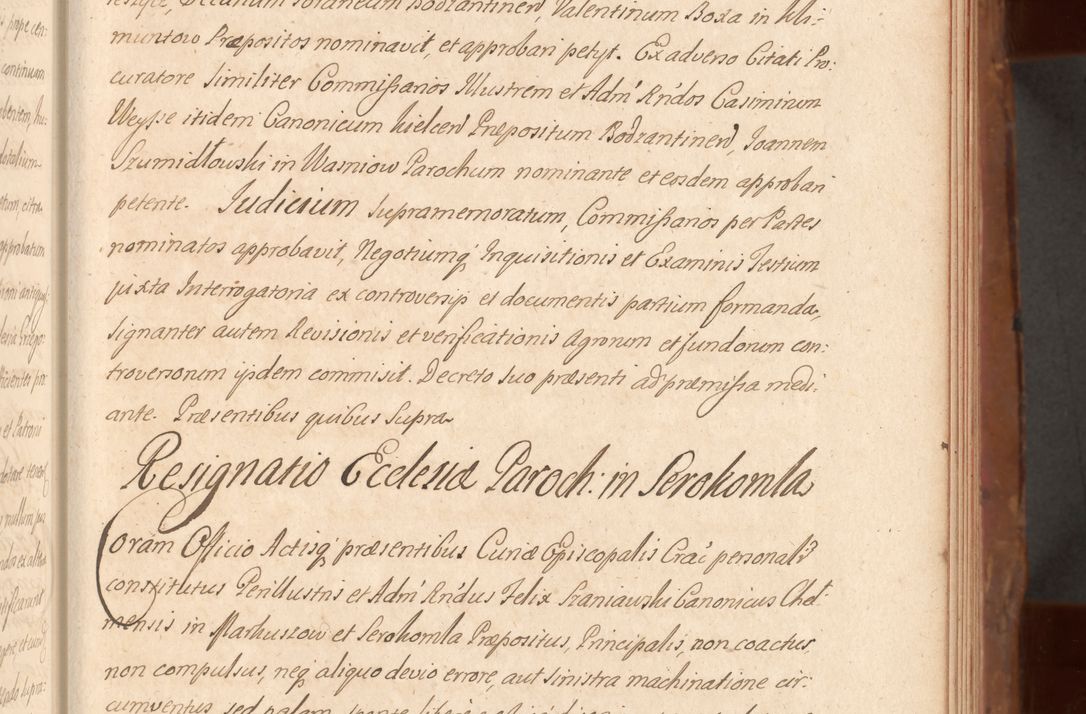 Decanum foraneum Bodzantinen, Valentinum Boxa in Kli-
muntow Præpositos nominavit, et approbari petyt. Ex adverso Citati Pro:
curatore similiter Commissarios Illustrem et Adm Rndos Casimirum
Weysse itidem Canonicum Kielcen Præpositum Bodzantinen, Joannem
Szumidłowski in Wasniow Parochum nominante et eosdem approbari
petente. Judicium supramemoratum, Commissarios per Partes
nominatos approbavit, Negotiumq Inquisitionis et Examinis Testium
juxta Interrogatoria ex controversijs et documentis partium formanda,
signanter autem Revisionis et verificationis agrorum et fundorum con:
troversorum ijsdem commisit. Decreto suo præsenti ad præmissa medi:
ante. Præsentibus quibus supra
Resignatio Ecclesiæ Paroch: in Serokomla
Coram Officio Actisq præsentibus Curiæ Episcopalis Crac personalr
constitutus Perillustris et Adm Rndus Felix Szaniawski Canonicus Chel-
mensis in Markuszow et Serokomla Præpositus, Principalis, non coactus,
non compulsus, neq aliquo devio errore, aut sinistra machinatione cir:
cumventus sed palam, sponte libere
prope cen:
continuum
citra
approbatum
et Patroni
nullum